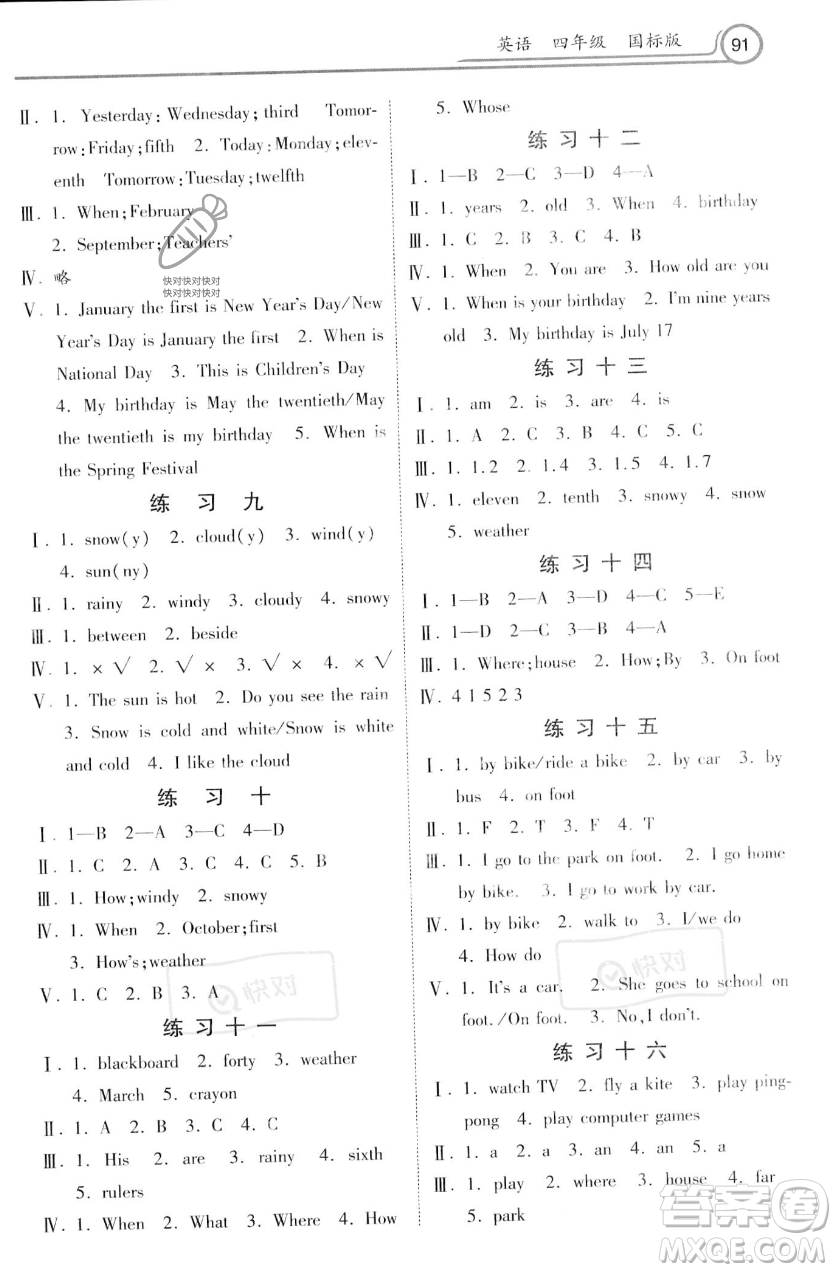 英语 四年级 国标版 91
Ⅱ. 1. Yesterday: Wednesday; third Tomor-
row: Friday; fifth 2. Today: Monday; elev-
enth Tomorrow: Tuesday; twelfth
Ⅲ. 1. When; February
2. September; Teachers'
Ⅳ. 略
Ⅴ. 1. January the first is New Year's Day/New
Year's Day is January the first 2. When is
National Day 3. This is Children's Day
4. My birthday is May the twentieth/May
the twentieth is my birthday 5. When is
the Spring Festival
练习九
Ⅰ. 1. snow(y) 2. cloud(y) 3. wind(y)
4. sun(ny)
Ⅱ. 1. rainy 2. windy 3. cloudy 4. snowy
Ⅲ. 1. between 2. beside
Ⅳ. 1. × √ 2. √ × 3. √ × 4. × √
Ⅴ. 1. The sun is hot 2. Do you see the rain
3. Snow is cold and white/Snow is white
and cold 4. I like the cloud
练习十
Ⅰ. 1—B 2—A 3—C 4—D
Ⅱ. 1. C 2. A 3. C 4. C 5. B
Ⅲ. 1. How; windy 2. snowy
Ⅳ. 1. When 2. October; first
3. How's; weather
Ⅴ. 1. C 2. B 3. A
练习十一
Ⅰ. 1. blackboard 2. forty 3. weather
4. March 5. crayon
Ⅱ. 1. C 2. B 3. C 4. C
Ⅲ. 1. His 2. are 3. rainy 4. sixth
5. rulers
Ⅳ. 1. When 2. What 3. Where 4. How
5. Whose
练习十二
Ⅰ. 1—B 2—C 3—D 4—A
Ⅱ. 1. years 2. old 3. When 4. birthday
Ⅲ. 1. B 2. C 3. C 4. B
Ⅳ. 1. When 2. You are 3. How old are you
Ⅴ. 1. When is your birthday 2. I'm nine years
old 3. My birthday is July 17
练习十三
Ⅰ. 1. am 2. is 3. are 4. is
Ⅱ. 1. A 2. C 3. C 4. B 5. B
Ⅲ. 1. 1.2 2. 1.4 3. 1.5 4. 1.7
Ⅳ. 1. eleven 2. tenth 3. snowy 4. snow
5. weather
练习十四
Ⅰ. 1—B 2—A 3—D 4—C 5—E
Ⅱ. 1—B 2—C 3—D 4—A
Ⅲ. 1. Where; house 2. How; By 3. On foot
Ⅳ. 4 1 5 2 3
练习十五
Ⅰ. 1. by bike/ride a bike 2. by car 3. by
bus 4. on foot
Ⅱ. 1. F 2. T 3. F 4. T
Ⅲ. 1. I go to the park on foot. 2. I go home
by bike. 3. I go to work by car.
Ⅳ. 1. by bike 2. walk to 3. I/we do
4. How do
Ⅴ. 1. It's a car. 2. She goes to school on
foot./On foot. 3. No, I don't.
练习十六
Ⅰ. 1. watch TV 2. fly a kite 3. play ping-
pong 4. play computer games
Ⅱ. 1. a 2. a 3. an 4. an 5. a
Ⅲ. 1. play 2. where 3. house 4. far
5. park
快对快对快对
快对快对快对
快对
快对
答案圈
MXQE.COM